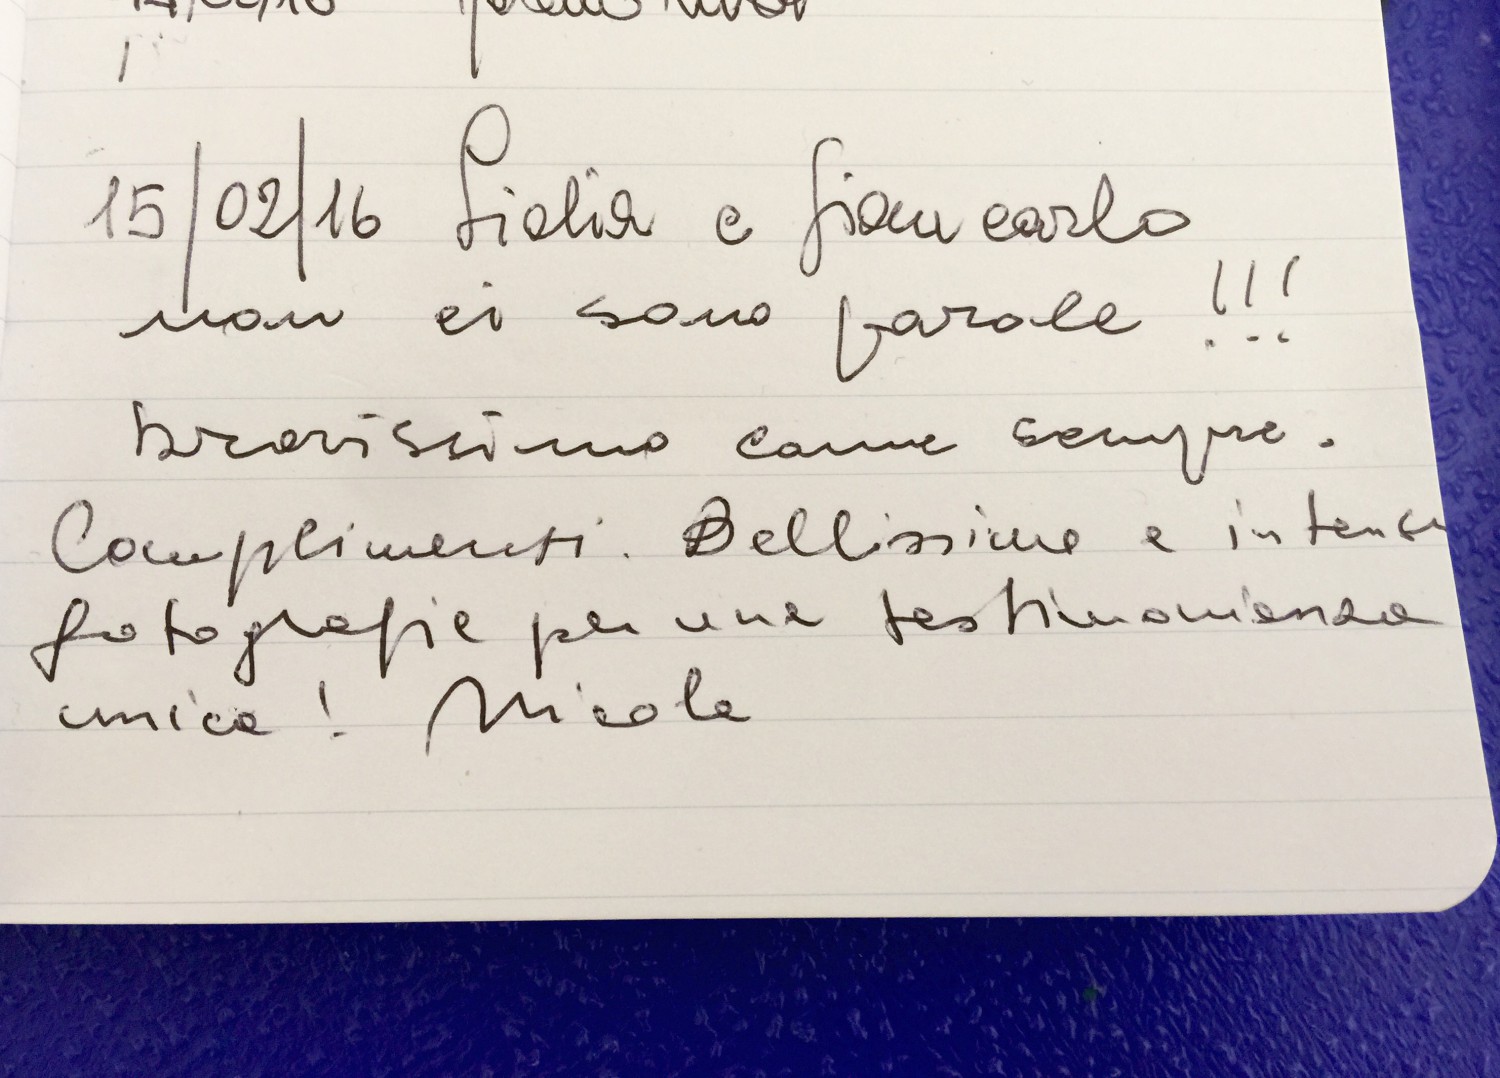 15/02/16 Lidia e Giancarlo
non ci sono parole !!!
bravissimo come sempre.
Complimenti. Bellissime e intense
fotografie per una testimonianza
unica! Nicola